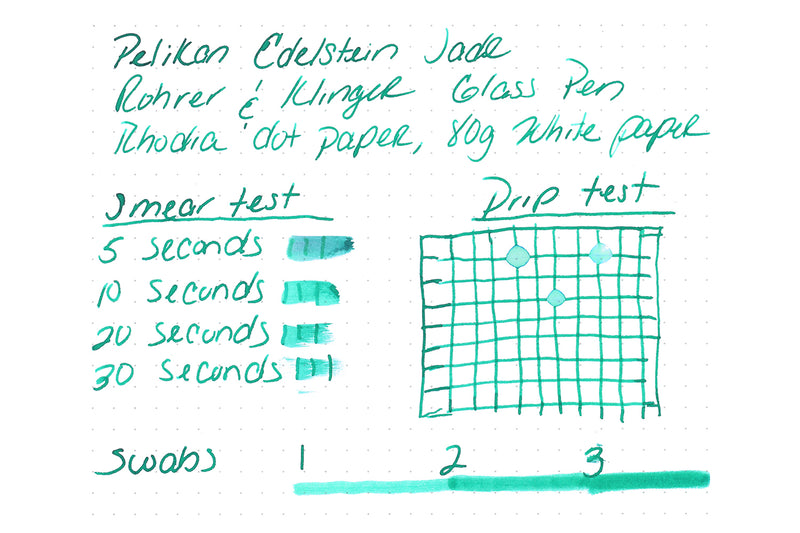 Pelikan Edelstein Jade
Rohrer & Klinger Glass Pen
Rhodia dot paper, 80g white paper
Smear test
5 seconds
10 seconds
20 seconds
30 seconds
Drip test
Swabs 1 2 3